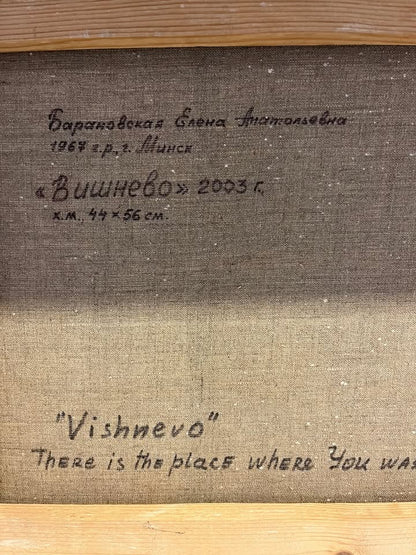 Барановская Елена Анатольевна
1967 г.р., г. Минск
«Вишнево» 2003 г.
х.м., 44×56 см.
"Vishnevo"
There is the place where You was